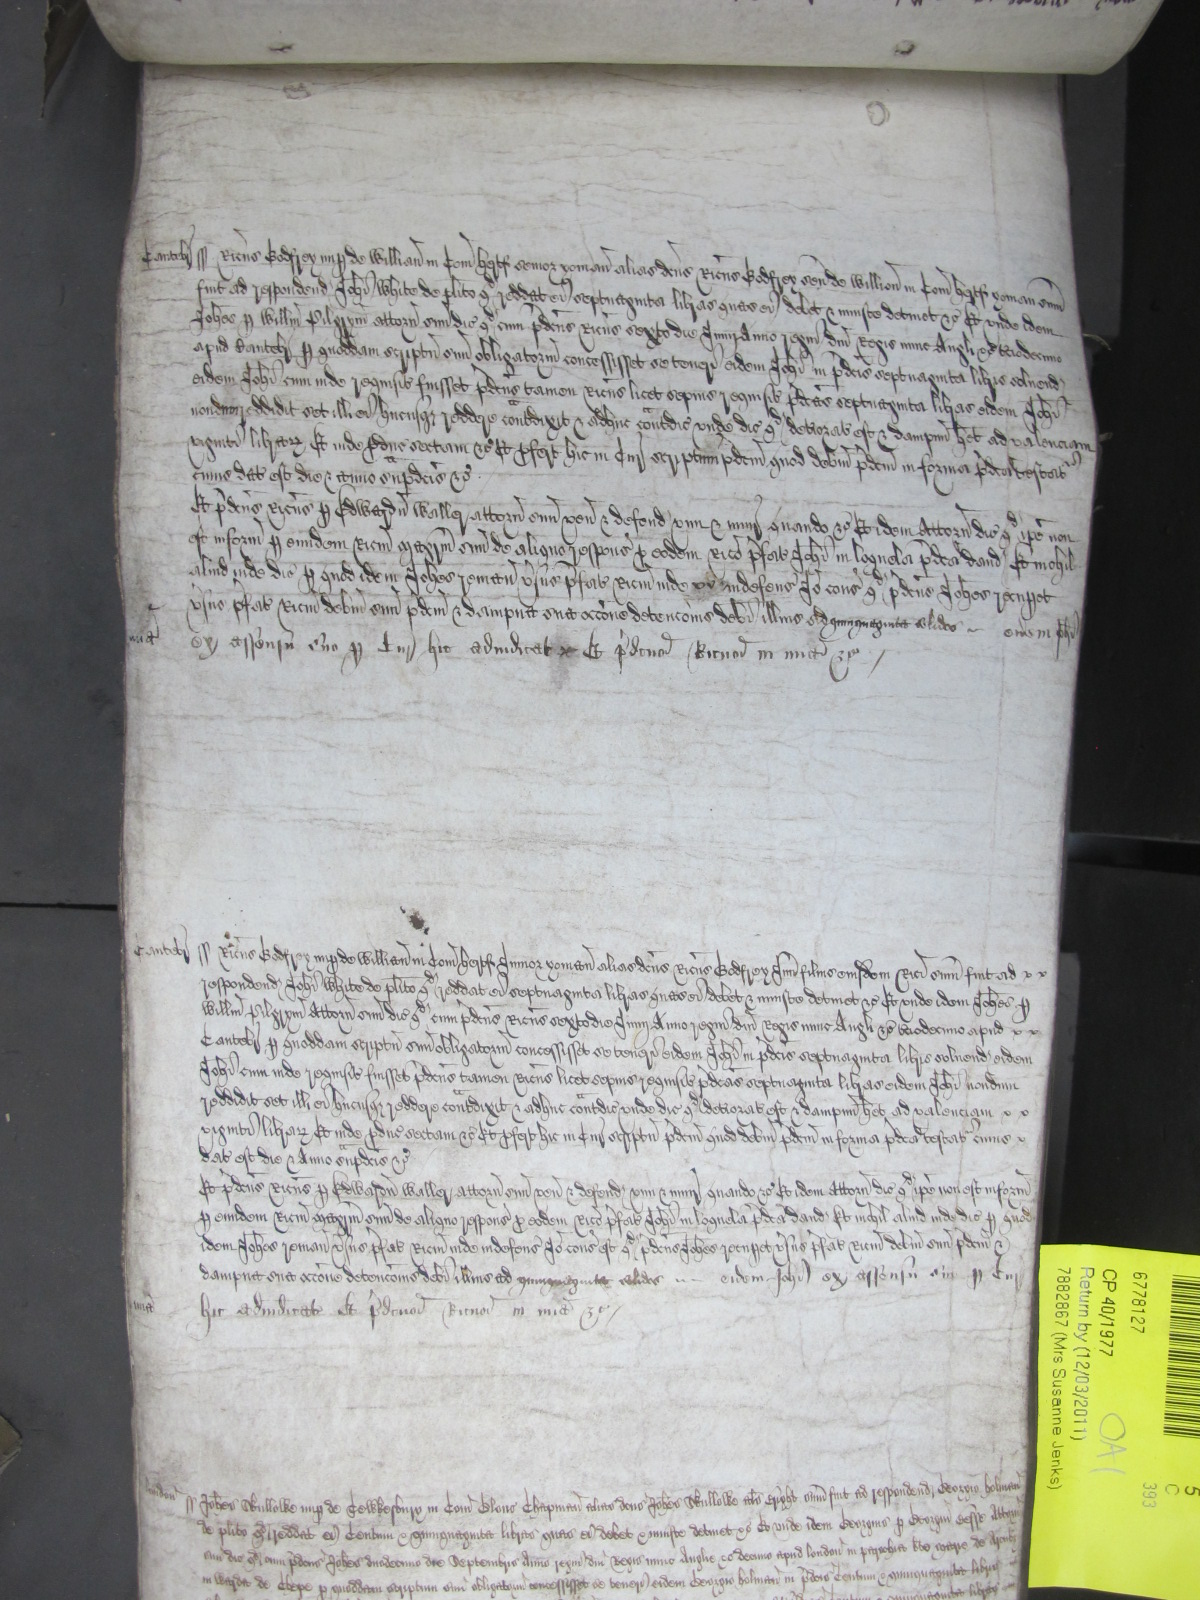 Cantebr ss Ricus Godfrey nup de Willian in Com Hertf senior yoman alias dcus Ricus Godfrey sen de Willion in Com Hertf yoman sum
fuit ad respondend Johi White de plito qd reddat ei septuaginta libras quas ei debet & iniuste detinet &c Et unde idem
Johes p Willm Pilgrym attorn suum dic qd cum pdcus Ricus sexto die Junii Anno regni dni Regis nunc Angl &c tciodecimo
apud Cantebr p quoddam scriptu suu obligatoriu concessisset se teneri eidem Johi in pdcis septuaginta libris solvend
eidem Johi cum inde requisit fuisset pdcus tamen Ricus licet sepius requisit pdcas septuaginta libras eidem Johi
nondum reddidit set ill ei hucusqz reddere contdixit & adhuc contdic unde dic qd detiorat est & dampnu het ad valenciam
viginti librarz Et inde pduc sectam &c Et pfert hic in Cur scriptum pdcm quod debitu pdcm in forma pdca testat
cuius dat est die & anno supdcis &c
Et pdcus Ricus p Edwardu Waller attorn suu ven & defend vim & iniur quando &c Et idem Attorn dic qd ipe non
est inform p eundem Ricm magrm suu de aliquo respons p eodem Rico pfat Johi in loquela pdca dand Et nichil
aliud inde dic p quod idem Johes reman vsus pfat Ricm inde indefens Io cons est qd pdcus Johes recupet
vsus pfat Ricm debitu suu pdcm & dampna sua occone detencionis debi illius ad quinquaginta solidos eidem Johi
mia ex assensu suo p Cur hic adiudicat Et pdcus Ricus in mia &c
Cantebr ss Ricus Godfrey nup de Willian in Com Hertf Junior yoman alias dcus Ricus Godfrey Jun filius eiusdem Rici sum fuit ad
respondend Johi White de plito qd reddat ei septuaginta libras quas ei debet & iniuste detinet &c Et unde idem Johes p
Willm Pilgrym Attorn suum dic qd cum pdcus Ricus sexto die Junii Anno regni dni Regis nunc Angl &c tciodecimo apud
Cantebr p quoddam scriptu suu obligatoriu concessisset se teneri eidem Johi in pdcis septuaginta libris solvend eidem
Johi cum inde requisit fuisset pdcus tamen Ricus licet sepius requisit pdcas septuaginta libras eidem Johi nondum
reddidit set ill ei hucusqz reddere contdixit & adhuc contdic unde dic qd detiorat est & dampnu het ad valenciam
viginti librarz Et inde pduc sectam &c Et pfert hic in Cur scriptu pdcm quod debitu pdcm in forma pdca testat cuius
dat est die & Anno supdcis &c
Et pdcus Ricus p Edwardu Waller attorn suu ven & defend vim & iniur quando &c Et idem Attorn dic qd ipe non est inform
p eundem Ricm magrm suu de aliquo respons p eodem Rico pfat Johi in loquela pdca dand Et nichil aliud inde dic p quod
idem Johes reman vsus pfat Ricm inde indefens Io cons est qd pdcus Johes recupet vsus pfat Ricm debitu suu pdcm &
dampna sua occone detencionis debi illius ad quinquaginta solidos eidem Johi ex assensu suo p Cur
mia hic adiudicat Et pdcus Ricus in mia &c
London ss Johes Bullocke nup de Tewkesbury in Com Glouc Chapman alias dcus Johes Bullocke sum fuit ad respondend Georgio Holman
de plito qd reddat ei Centum & quinquaginta libras quas ei debet & iniuste detinet &c Et unde idem Georgius p Georgiu Attorn
suu dic qd cum pdcus Johes duodecimo die Septembris Anno regni dni Regis nunc Anglie decimo apud London in parochia be Marie de Arcubz
in Warda de Chepe p quoddam scriptum suu obligatoriu concessisset se teneri eidem Georgio Holman in pdcis Centum & quinquaginta libris
6778127
CP 40/1977
Return by (12/03/2011)
7882867 (Mrs Susanne Jenks)
OA1
5
C
393